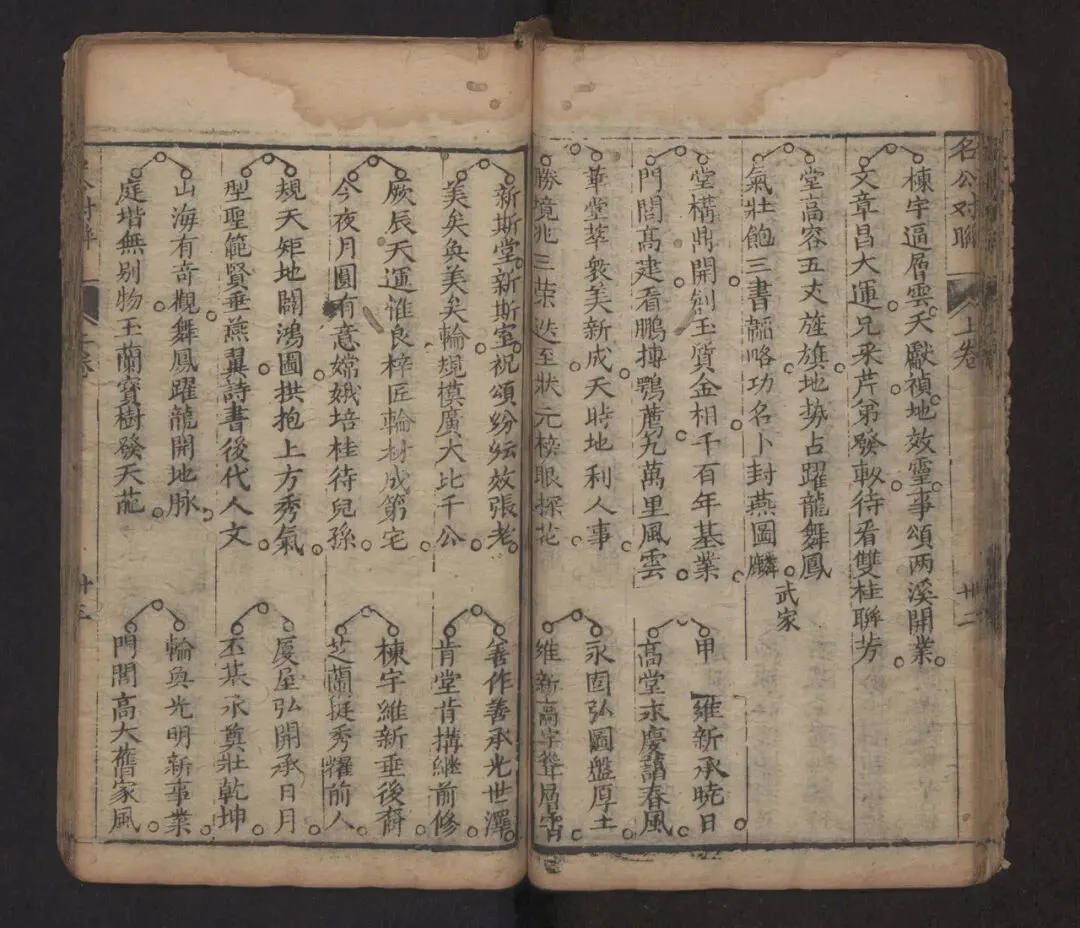 名公对聯
上卷
廿二
棟宇逼層雲天獻禎地效靈事頌两溪開業
文章昌大運兄采芹弟發軔待看雙桂聯芳
堂高容五丈旌旗地势占躍龍舞鳳
氣壯飽三書韜略功名卜封燕圖麟
武家
堂構鼎開劍玉質金相千百年基業
門閭高建看鵬摶鶚薦九萬里風雲
甲
維新承曉日
高堂末慶藹春風
華堂萃衆美新成天時地利人事
勝境兆三荣迭至狀元榜眼探花
永固弘圖盤厚土
維新高宇聳層霄
新斯堂新斯室祝頌紛紜效張老
美矣奐美矣輪規模廣大比千公
善作善承光世澤
肯堂肯搆継前修
厥辰天運惟良梓匠輪材成第宅
今夜月圓有意嫦娥培桂待兒孫
棟宇維新垂後裔
芝蘭挺秀耀前人
規天矩地闢鴻圖拱抱上方秀氣
型聖範賢垂燕翼詩書後代人文
厦屋弘開承日月
丕基永奠壯乾坤
山海有奇觀舞鳳躍龍開地脉
庭堦無別物玉蘭寳樹發天葩
輪奐光明新事業
門閭高大舊家風
廿三